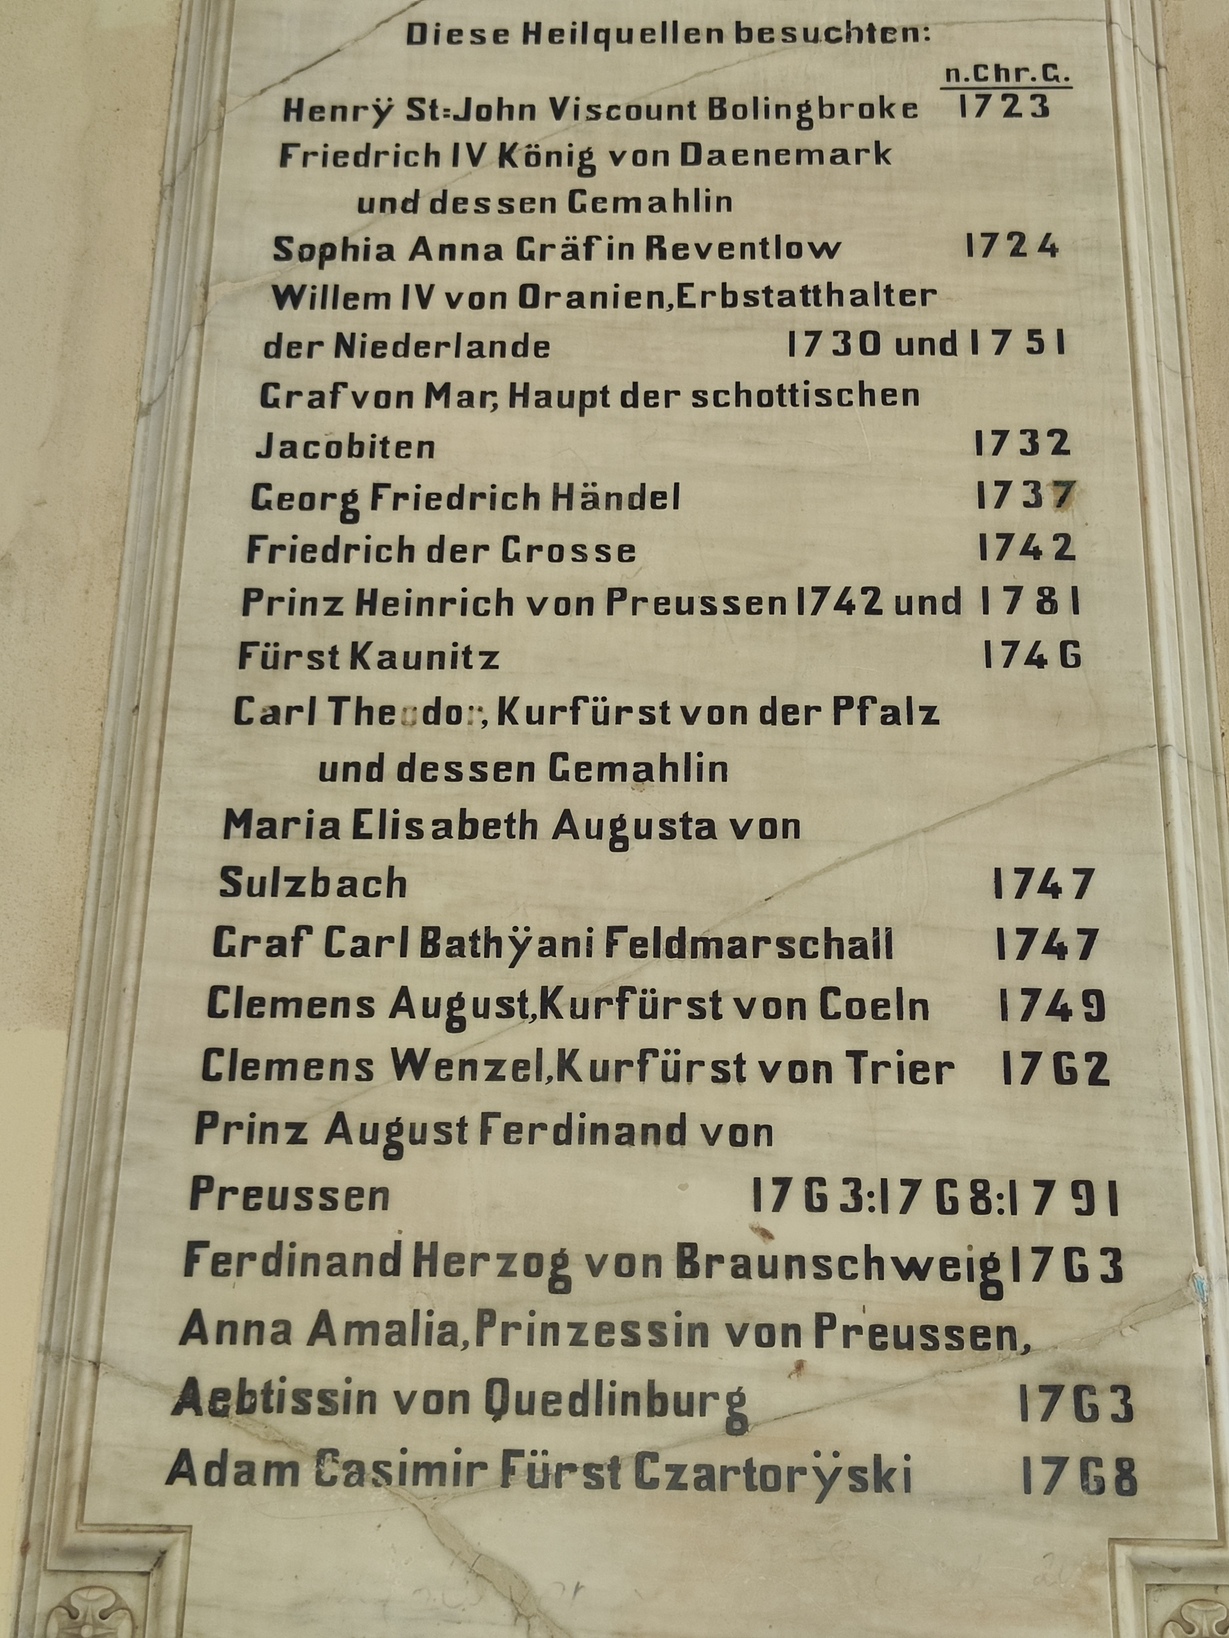 Diese Heilquellen besuchten:
n.Chr.G.
Henrÿ St=John Viscount Bolingbroke 1723
Friedrich IV König von Daenemark
und dessen Gemahlin
Sophia Anna Gräfin Reventlow 1724
Willem IV von Oranien, Erbstatthalter
der Niederlande 1730 und 1751
Graf von Mar, Haupt der schottischen
Jacobiten 1732
Georg Friedrich Händel 1737
Friedrich der Grosse 1742
Prinz Heinrich von Preussen 1742 und 1781
Fürst Kaunitz 1746
Carl Theodor, Kurfürst von der Pfalz
und dessen Gemahlin
Maria Elisabeth Augusta von
Sulzbach 1747
Graf Carl Bathÿani Feldmarschall 1747
Clemens August, Kurfürst von Coeln 1749
Clemens Wenzel, Kurfürst von Trier 1762
Prinz August Ferdinand von
Preussen 1763:1768:1791
Ferdinand Herzog von Braunschweig 1763
Anna Amalia, Prinzessin von Preussen,
Aebtissin von Quedlinburg 1763
Adam Casimir Fürst Czartorÿski 1768